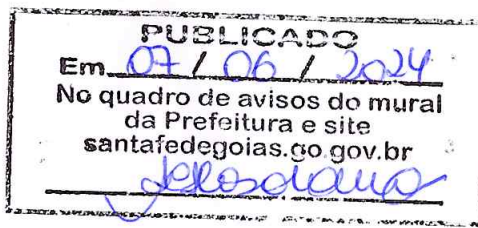 PUBLICADO
Em 07 / 06 / 2024
No quadro de avisos do mural
da Prefeitura e site
santafedegoias.go.gov.br